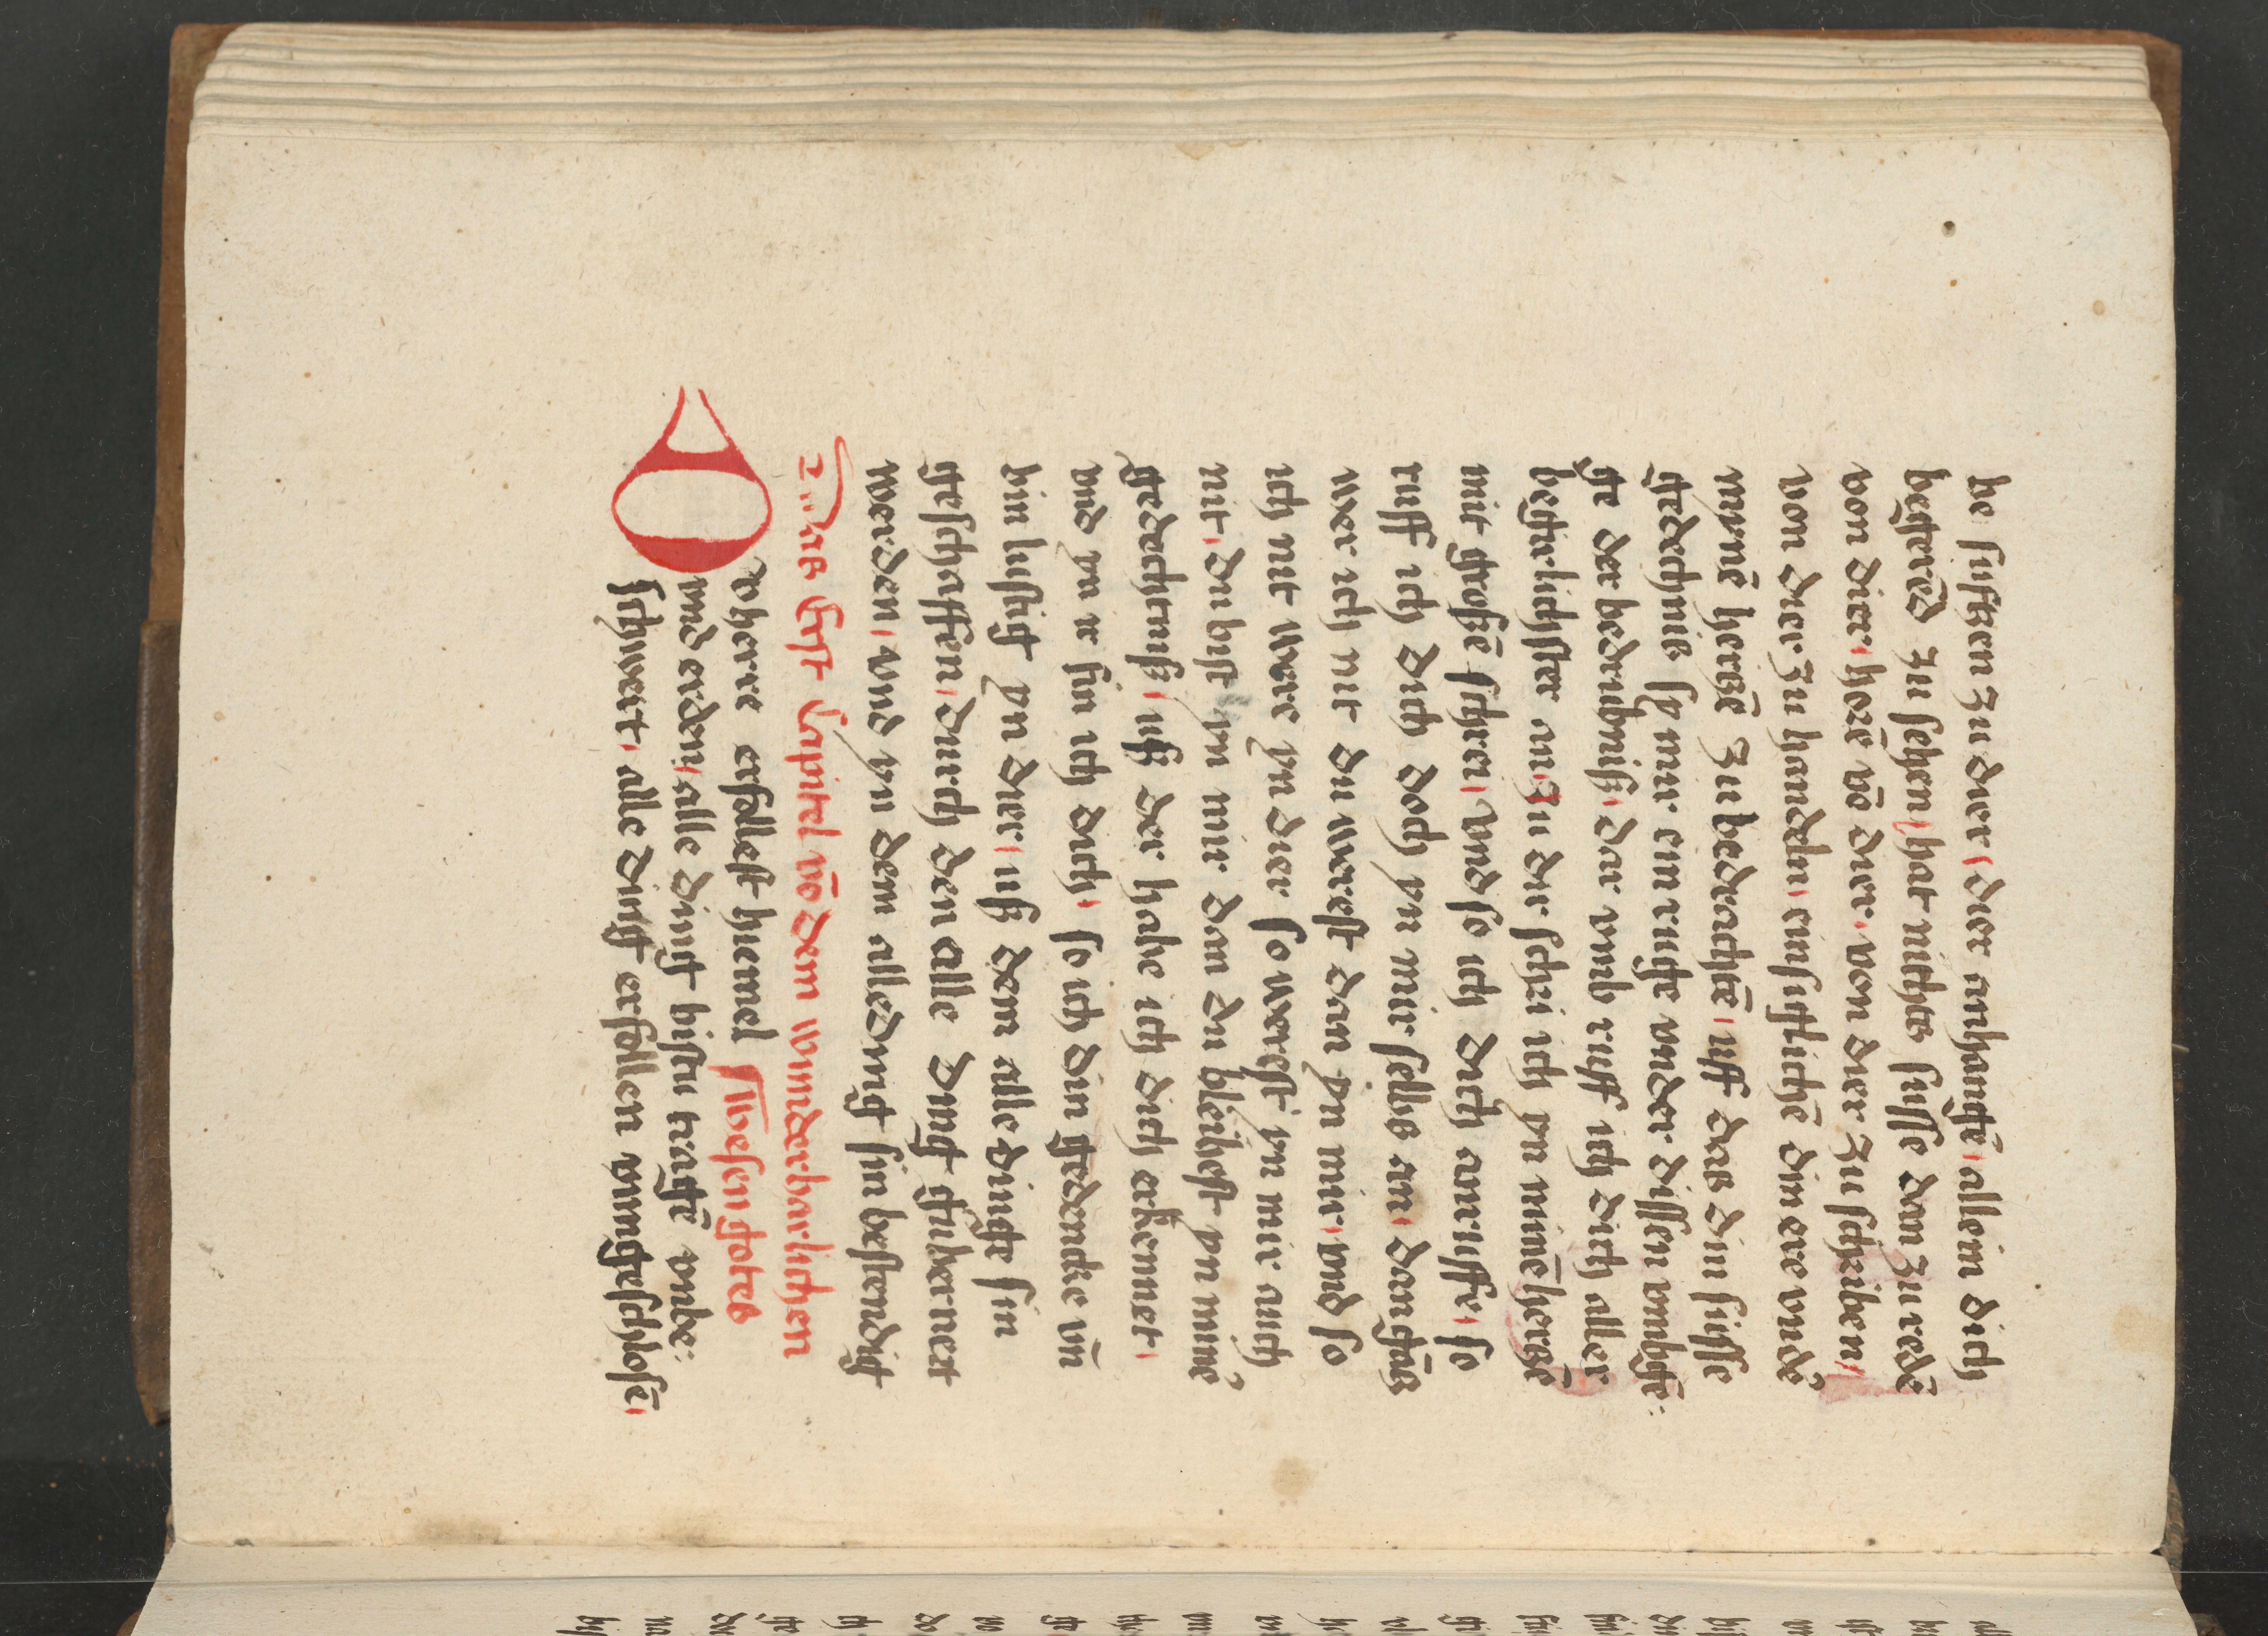 be sufftzen zu dier, dier anhangē, allein dich
begerēd zu sehen, hat nichtes süsse dan zu redē
von dier, horē vō dier, von dier zu schriben,
von dier zu handeln, einsuftlichē din ere vndˀ
mynē hertzē zu bedrachtē, uff das din süsse
gedechnis sy mir ein ruge vnder dissen vmbgē:
ge der bedrubniß, dar vmb ruff ich dich aller
begirlichster an, zu dir schri ich yn minē hertzē
mit grossē schrei, vnd so ich dich anruffe, so
ruff ich dich doch yn mir selbs an, dan gātz
wer ich nit du werest dan yn mir, vnd so
ich nit were yn dier so werest yn mir auch
nit, du bist yn mir dan du bleibest yn mimē
gedechtniß, uß der habe ich dich erkennet,
vnd yn ir fin ich dich, so ich din gedencke vñ
bin lustig yn dier, uß dem alle dinge sin
geschaffen, durch den alle ding gubernert
werden, vnd yn dem alle ding sin bestendig
Das Erst Capitel vō dem wunderbarlichen
O herre erfollest hiemel wesen gotes
vnd erden, alle dingt bistu tragē onbe:
schwert, alle dingt erfollen onyngeschlosē,